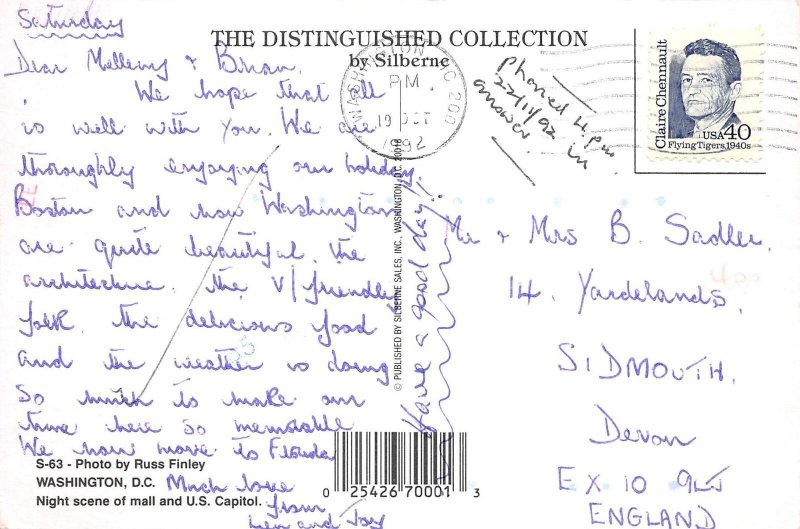 Saturday
THE DISTINGUISHED COLLECTION
by Silberne
Dear Mellemy & Brian,
We hope that all
is well with you. We are
thoroughly enjoying our holiday.
Boston and now Washington
are quite beautiful. the
architecture. the v/friendly
folk. the delicious food
and the weather is doing
so much to make our
time here so memorable
We now move to Florida
Much love
from
Len and Joy
S-63 - Photo by Russ Finley
WASHINGTON, D.C.
Night scene of mall and U.S. Capitol.
Have a good day!!
© PUBLISHED BY SILBERNE SALES, INC., WASHINGTON, D.C. 20018
0 25426 70001 3
WASHINGTON DC 200
PM
19 OCT
1992
phoned 4.pm
22/11/92 in
answer.
Claire Chennault
USA 40
Flying Tigers, 1940s
Mr & Mrs B. Sadler.
14. Yardelands.
SIDMOUTH.
Devon
EX10
ENGLAND